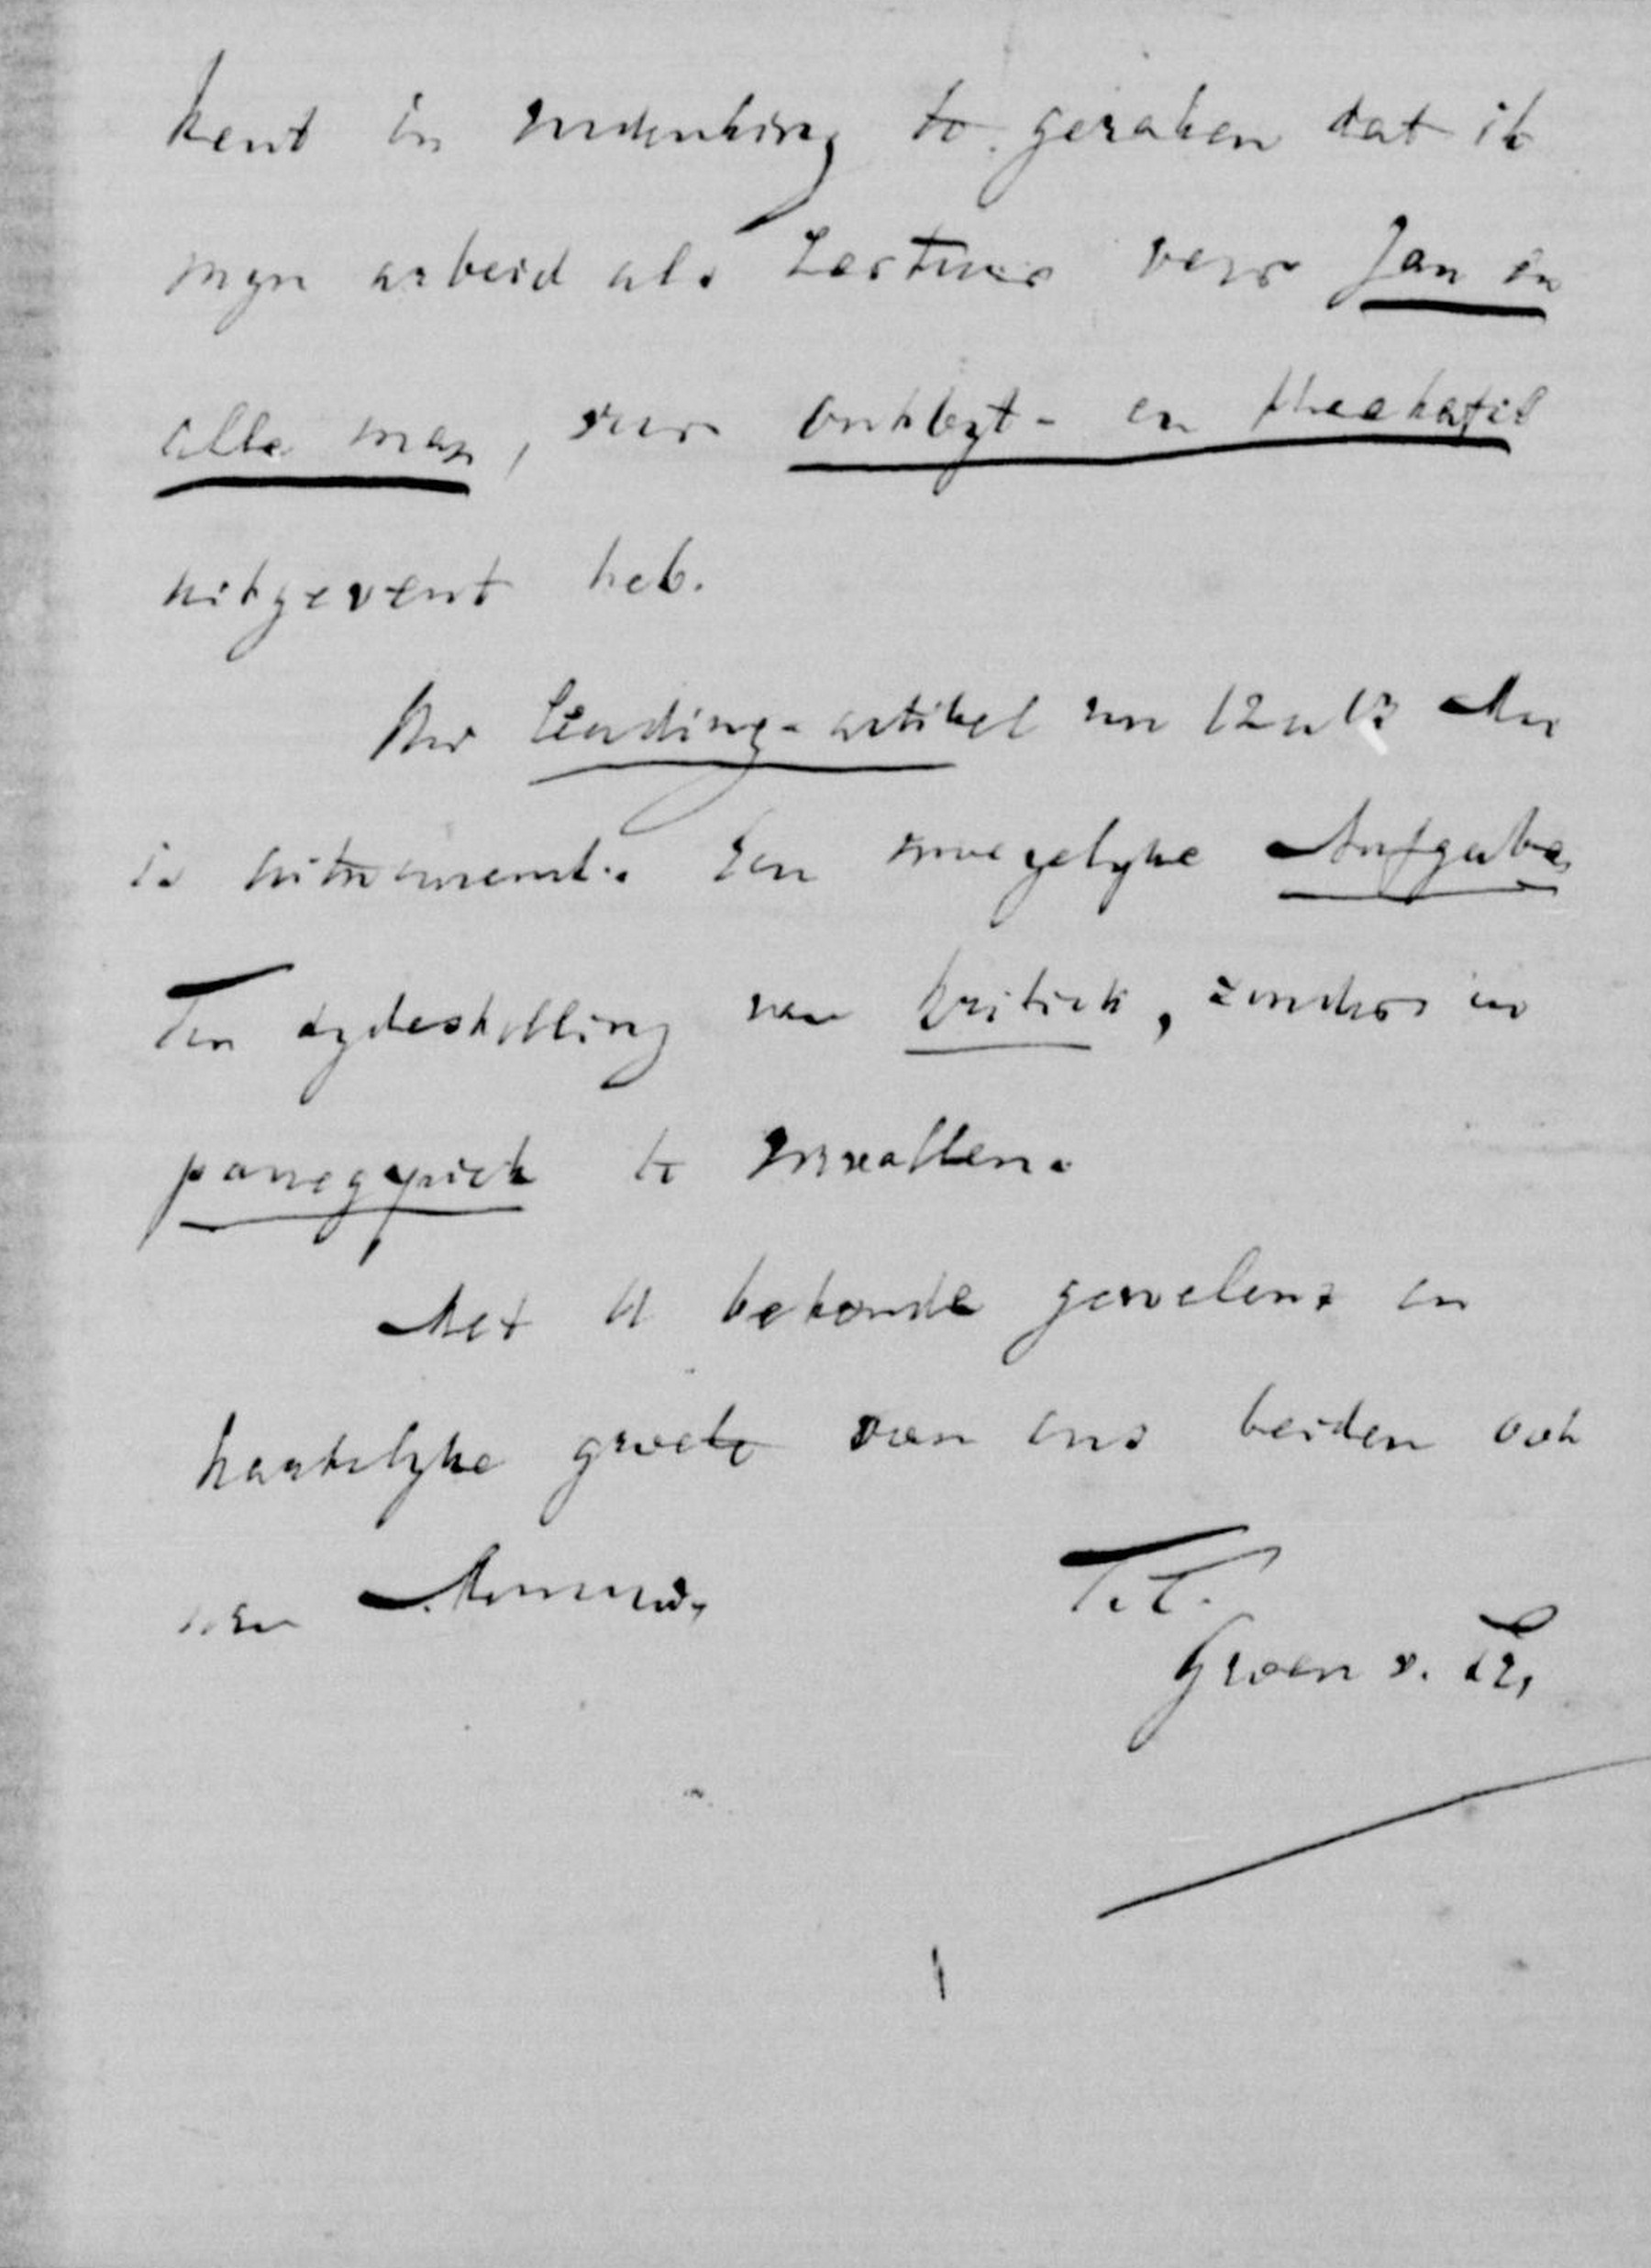 kent in verdenking te geraken dat ik
myn arbeid als Lectuur voor Jan en
alle man, voor ontbyt- en theetafel
uitgevent heb.
Uw leading-artikel van 12 u 13 Mei
is uitnemend. Een moeyelyke Aufgabe,
Ter tydestelling van kritiek, zonder in
panegyriek te vervallen.
Met U bekende gevoelens en
hartelyke groete van ons beiden ook
van
T.t.
Groen v. Pr.